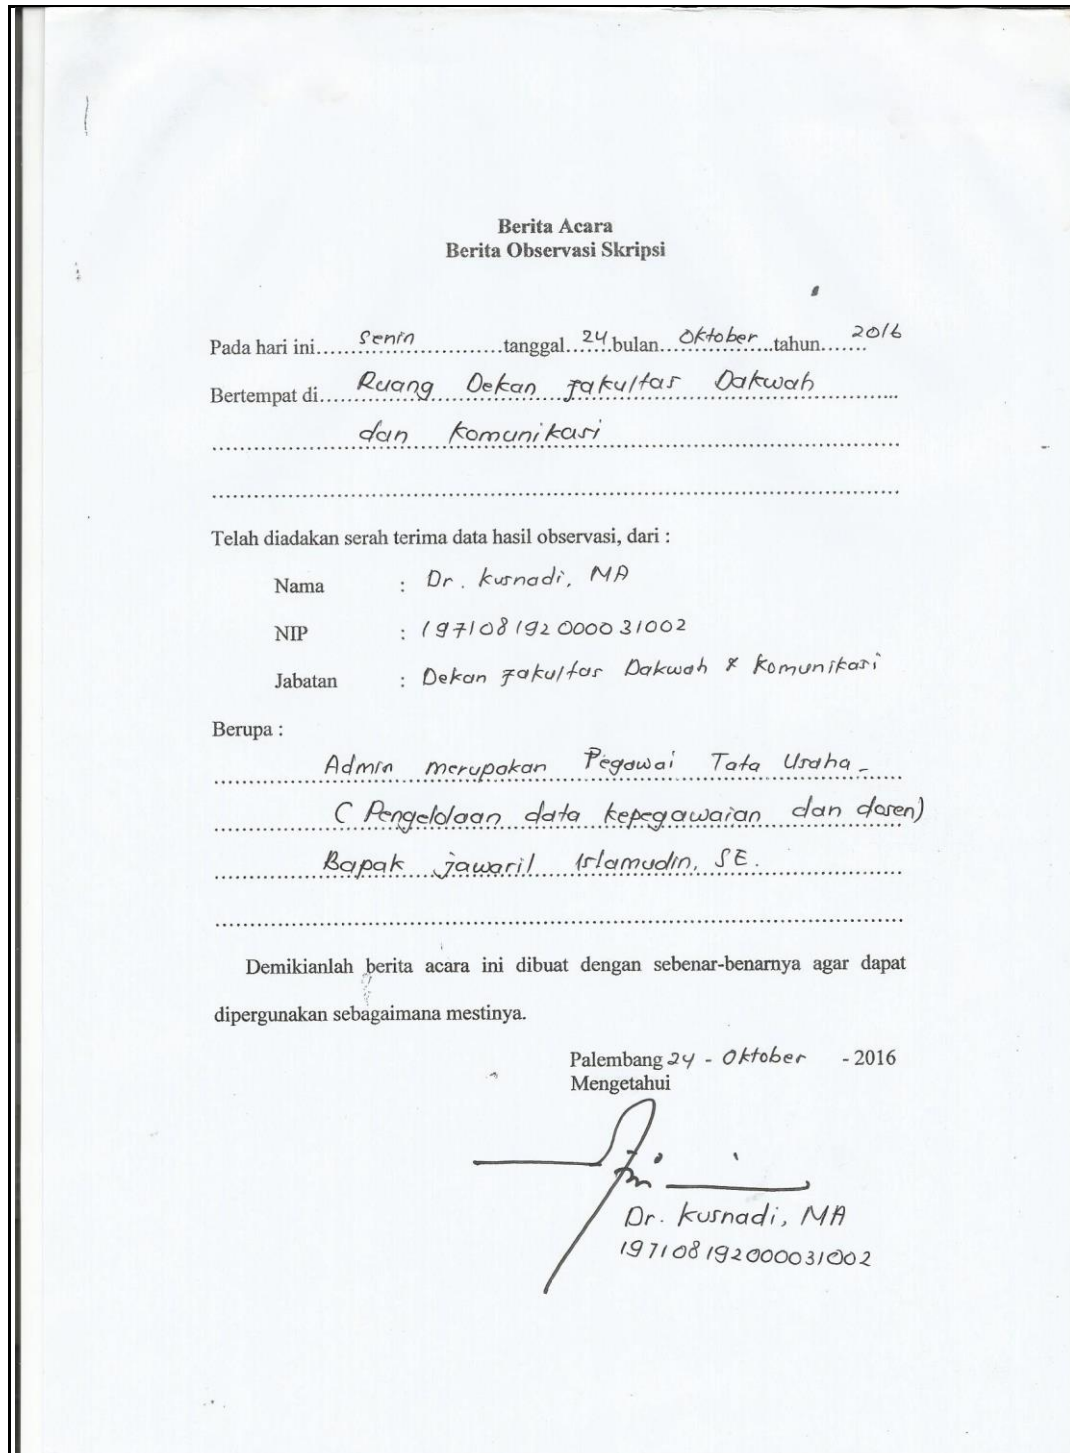 Berita Acara
Berita Observasi Skripsi
Pada hari ini.....Senin.....tanggal...24.bulan...Oktober...tahun.......2016
Bertempat di.....Ruang Dekan Fakultas Dakwah
dan Komunikasi
Telah diadakan serah terima data hasil observasi, dari :
Nama : Dr. Kusnadi, MA
NIP : 197108192000031002
Jabatan : Dekan Fakultas Dakwah & Komunikasi
Berupa :
Admin merupakan Pegawai Tata Usaha -
( Pengelolaan data kepegawaian dan dosen)
Bapak Jawaril Islamudin, SE.
Demikianlah berita acara ini dibuat dengan sebenar-benarnya agar dapat
dipergunakan sebagaimana mestinya.
Palembang 24 - Oktober - 2016
Mengetahui
Dr. Kusnadi, MA
197108192000031002